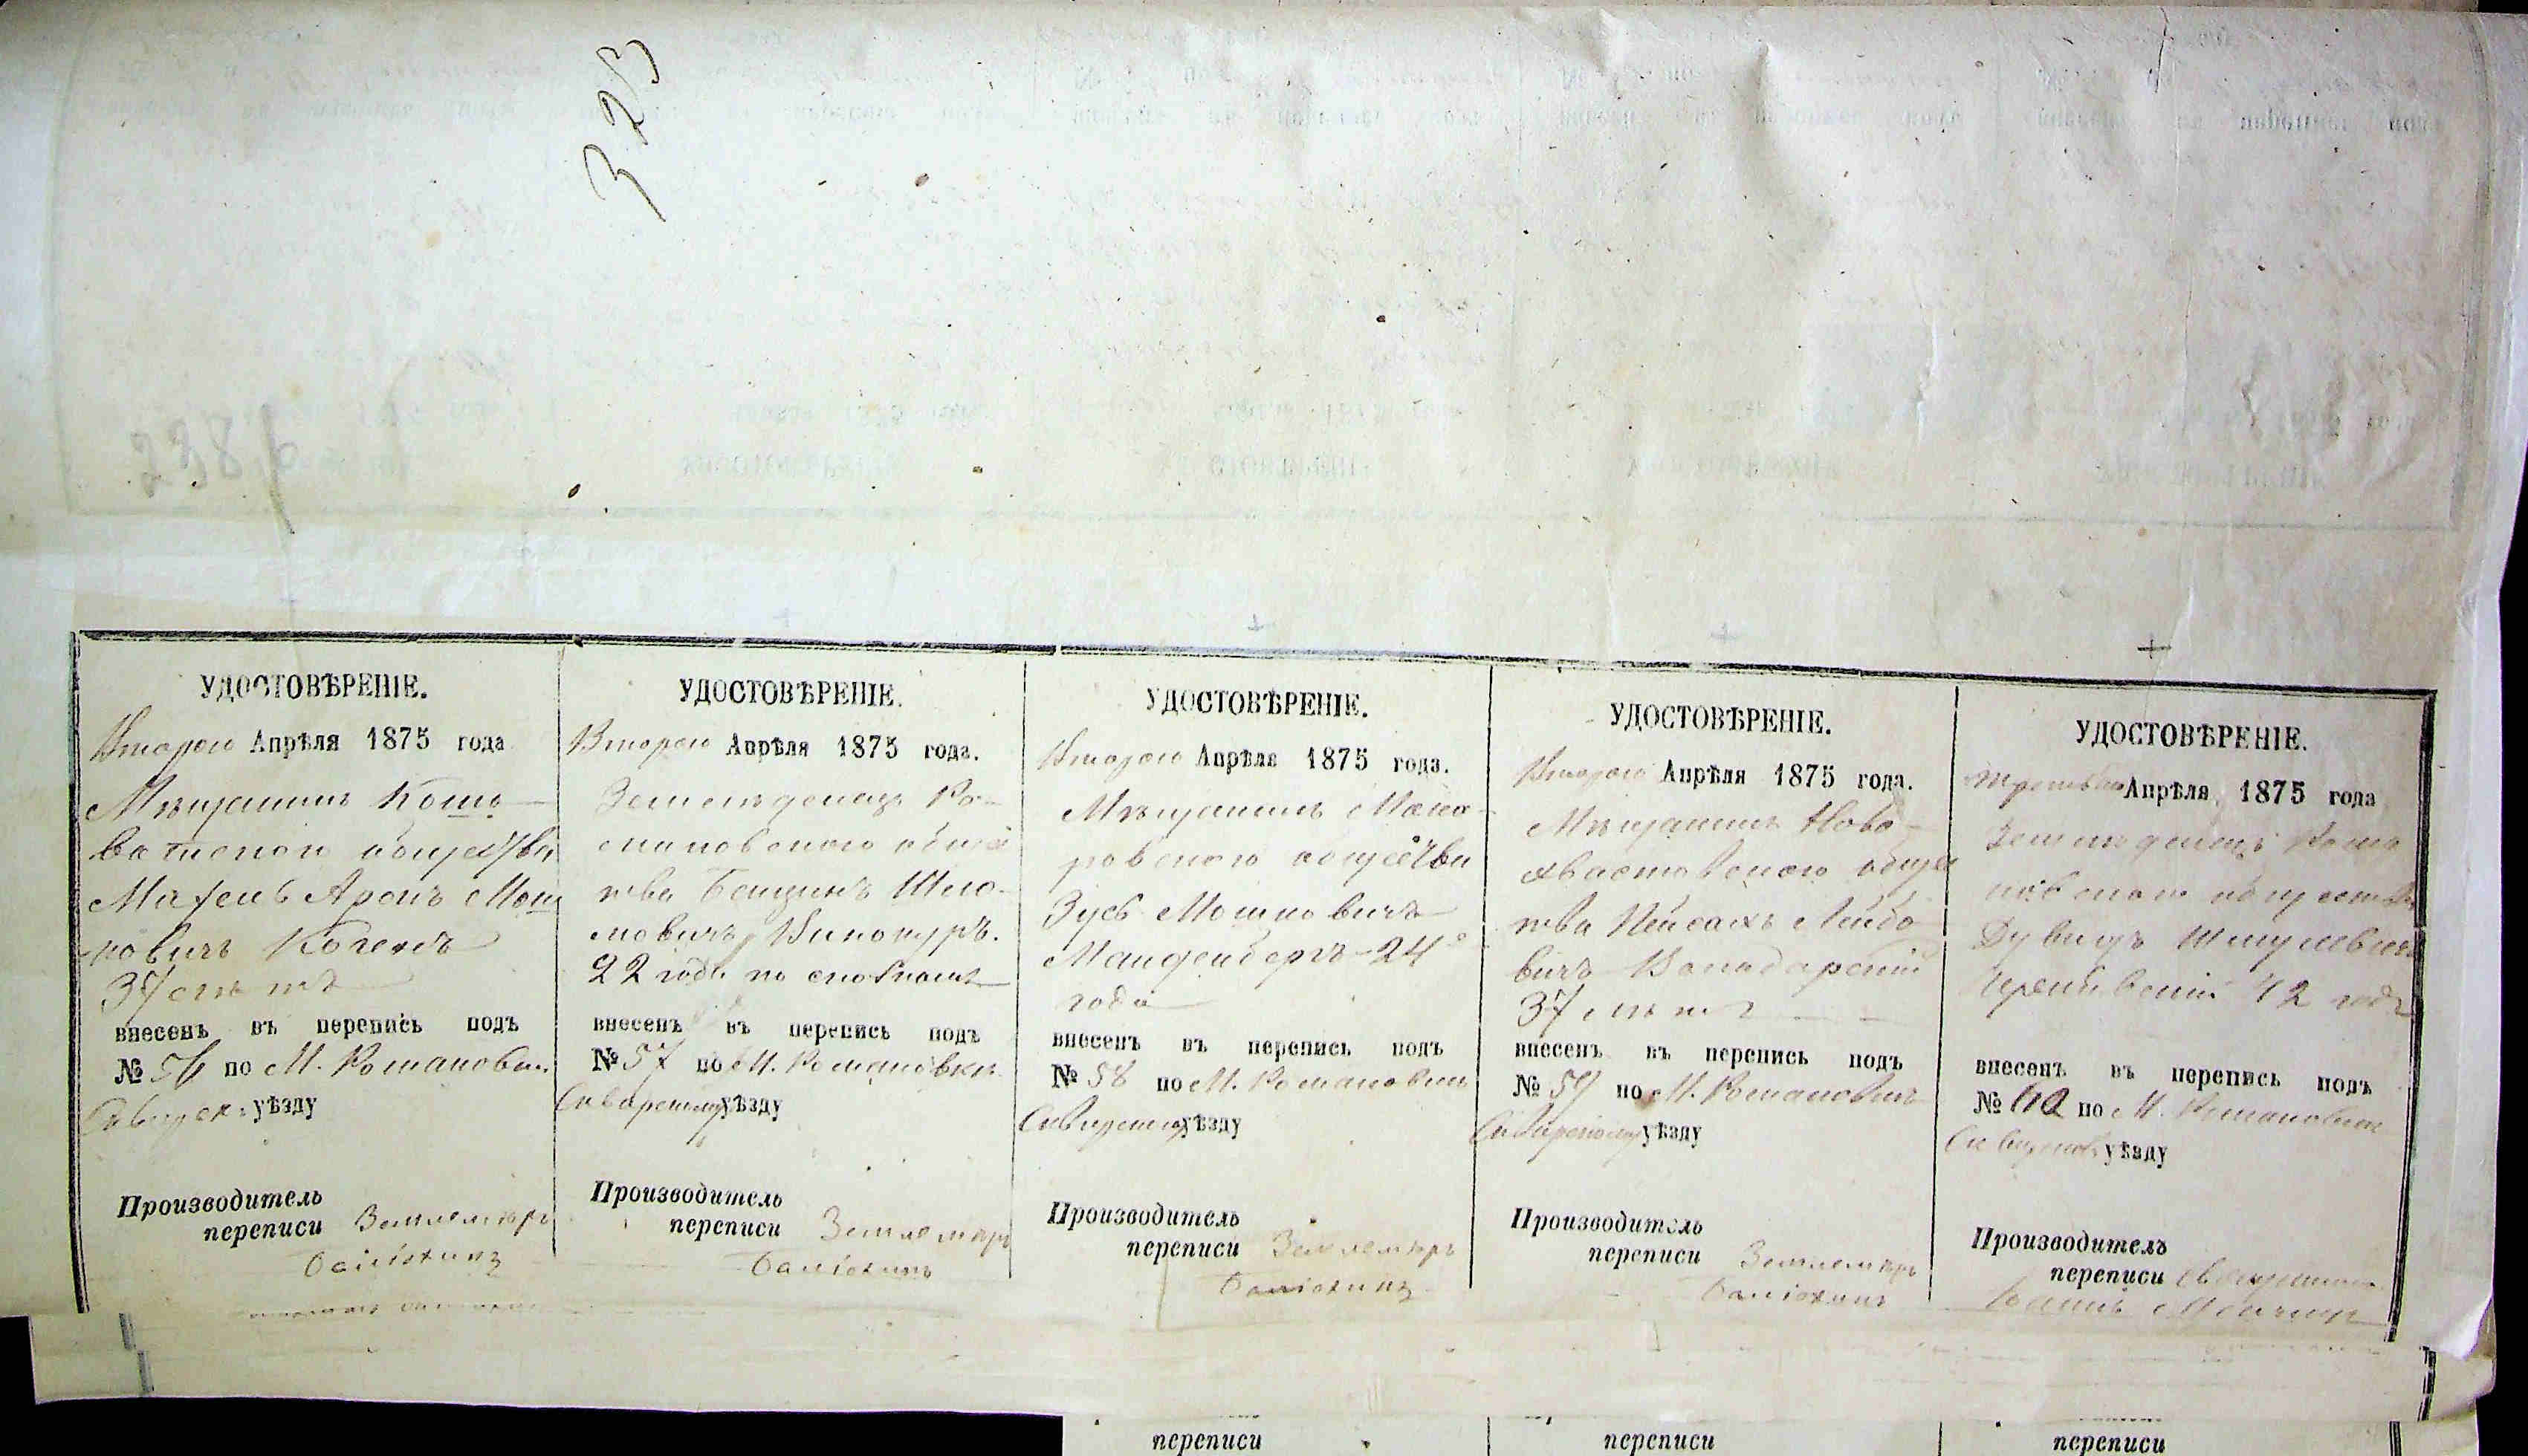 323
УДОСТОВѢРЕНІЕ.
Втораго Апрѣля 1875 года
Мѣщанинъ Кошо-
ватскаго общества
Мафель Аронъ Мош
-ковичъ Когенъ
37 лѣтъ
внесенъ въ перепись подъ
№ 56 по М. Романовкѣ
уѣзду
Производитель
переписи Землемѣръ
УДОСТОВѢРЕНІЕ.
Втораго Апрѣля 1875 года.
Земледѣлецъ Ро-
мановскаго общес
тва Бенционъ Шло-
мовичъ Винокуръ.
22 года
внесенъ въ перепись подъ
№ 57 по М. Романовкѣ
Сквирскому уѣзду
Производитель
переписи Землемѣръ
УДОСТОВѢРЕНІЕ.
Втораго Апрѣля 1875 года.
Мѣщанинъ Мака-
ровскаго общества
Зусь Мошковичъ
Манденбергъ 24
года
внесенъ въ перепись подъ
№ 58 по М. Романовкѣ
Сквирскому уѣзду
Производитель
переписи Землемѣръ
УДОСТОВѢРЕНІЕ.
Втораго Апрѣля 1875 года.
Мѣщанинъ Ново-
хвастовскаго общес
тва Пейсахъ Лейбо
вичъ Володарскій
37 лѣтъ
внесенъ въ перепись подъ
№ 59 по М. Романовкѣ
Сквирскому уѣзду
Производитель
переписи Землемѣръ
УДОСТОВѢРЕНІЕ.
Третьяго Апрѣля 1875 года
Земледѣлецъ Рома
новскаго общества
Дувидъ Шмулевичъ
42 года
внесенъ въ перепись подъ
№ 60 по М. Романовкѣ
уѣзду
Производитель
переписи
переписи
переписи
переписи